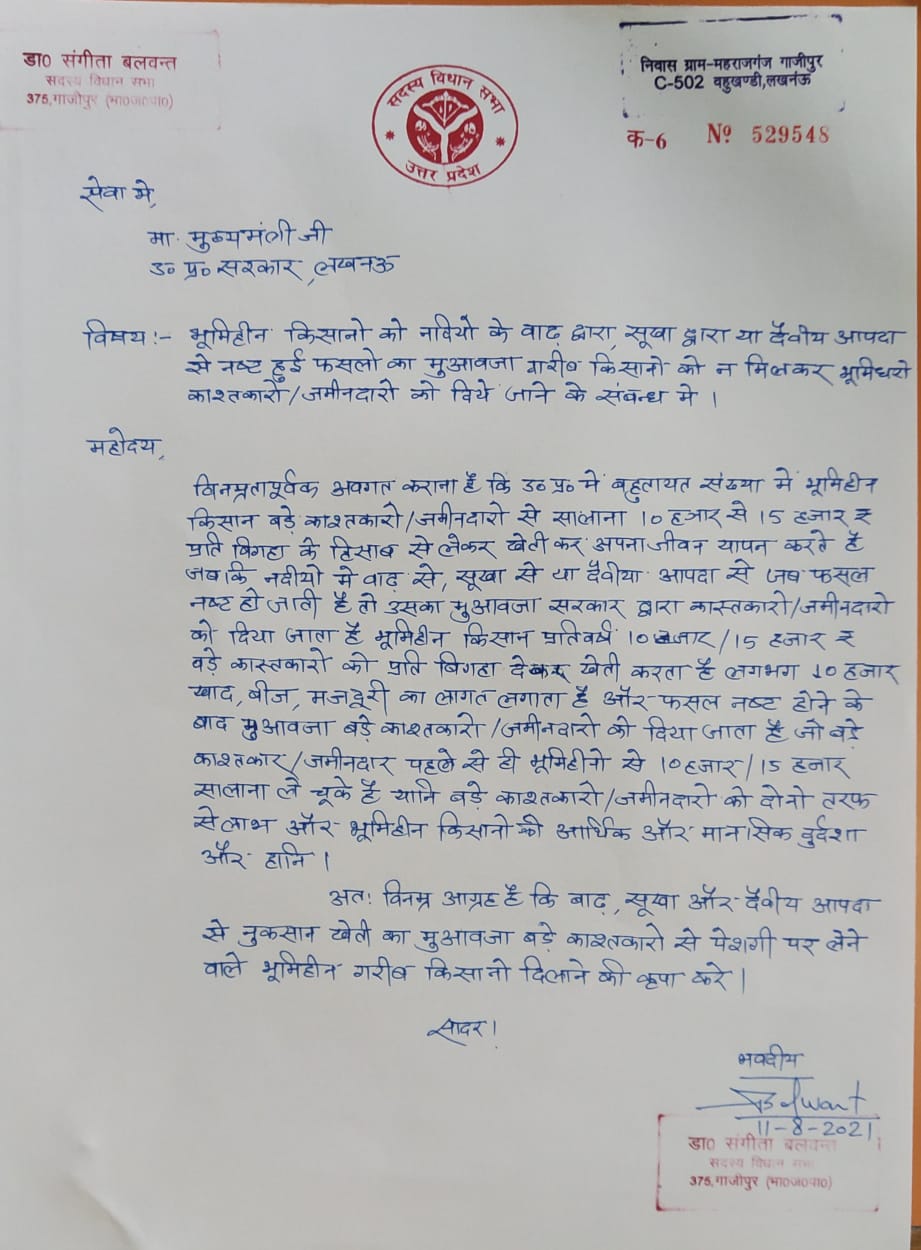 डा० संगीता बलवन्त
सदस्य विधान सभा
375,गाजीपुर (भा०ज०पा०)
सदस्य विधान सभा
उत्तर प्रदेश
निवास ग्राम-महराजगंज गाजीपुर
C-502 बहुखण्डी,लखनऊ
क-6 Nº 529548
सेवा मे,
मा. मुख्यमंत्री जी
उ० प्र० सरकार ,लखनऊ
विषय :- भूमिहीन किसानो को नदियो के बाढ़ द्वारा, सूखा द्वारा या दैवीय आपदा
से नष्ट हुई फसलो का मुआवजा गरीब किसानो को न मिलकर भूमिधरो
काश्तकारो/जमीनदारो को दिये जाने के संबन्ध मे ।
महोदय,
विनम्रतापूर्वक अवगत कराना है कि उ० प्र० मे बहुतायत संख्या मे भूमिहीन
किसान बड़े काश्तकारो/जमीनदारो से सालाना 10 हजार से 15 हजार ₹
प्रति बिगहा के हिसाब से लेकर खेती कर अपना जीवन यापन करते है
जब कि नदीयो मे बाढ़ से, सूखा से या दैवीया आपदा से जब फसल
नष्ट हो जाती है तो उसका मुआवजा सरकार द्वारा कास्तकारो/जमीनदारो
को दिया जाता है भूमिहीन किसान प्रतिवर्ष 10 हजार /15 हजार ₹
बड़े कास्तकारो को प्रति बिगहा देकर खेती करता है लगभग 10 हजार
खाद, बीज, मजदूरी का लागत लगाता है और फसल नष्ट होने के
बाद मुआवजा बड़े काश्तकारो /जमीनदारो को दिया जाता है जो बड़े
काश्तकार/जमीनदार पहले से ही भूमिहीनो से 10 हजार/15 हजार
सालाना ले चूके है यानि बड़े काश्तकारो/जमीनदारो को दोनो तरफ
से लाभ और भूमिहीन किसानो की आर्थिक और मानसिक दुर्दशा
और हानि ।
अतः विनम्र आग्रह है कि बाढ़, सूखा और दैवीय आपदा
से नुकसान खेती का मुआवजा बड़े काश्तकारो से पेशगी पर लेने
वाले भूमिहीन गरीब किसानो दिलाने की कृपा करे |
सादर।
भवदीय
11-8-2021
डा० संगीता बलवन्त
सदस्य विधान सभा
375,गाजीपुर (भा०ज०पा०)